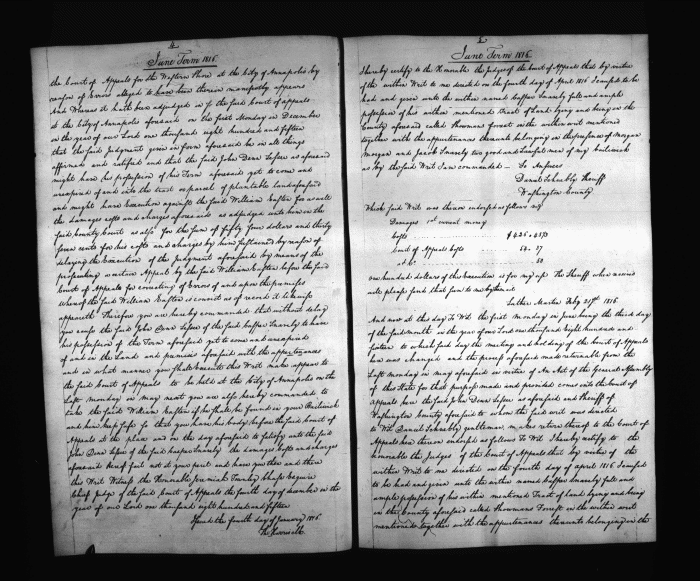 June Term 1816
the Court of Appeals for the Western Shore at the City of Annapolis by
reason of Errors alleged to have been therein manifestly appears
And Whereas it hath been adjudged in the said Court of appeals
at the City of Annapolis aforesaid on the first Monday in December
in the year of our Lord one thousand eight hundred and fifteen
that the said Judgment given in form aforesaid be in all things
affirmed and ratified and that the said John Dean Lessee as aforesaid
might have his possession of his Term aforesaid yet to come and
unexpired of and into the tract or parcel of plantable Land aforesaid
and might have Execution against the said William for as well
the damages costs and charges aforesaid as adjudged unto him in the
said County Court as also for the sum of fifty four dollars and thirty
seven cents for his costs and charges by him sustained by reason of
delaying the Execution of the Judgment aforesaid by means of the
prosecuting a writ on Appeal by the said William before the said
Court of Appeals for correcting of Errors of and upon the premises
whereof the said William is convict as of record it likewise
appeareth Therefore you are hereby commanded that without delay
you cause the said John Dean Lessee of the said Snavely to have
his possession of the Term aforesaid yet to come and unexpired
of and in the Land and premises aforesaid with the appurtenances
and in what manner you shall execute this Writ make appear to
the said Court of Appeals to be held at the City of Annapolis on the
Last monday in may next you are also hereby commanded to
take the said William if he shall be found in your Bailiwick
and him keep safe so that you have his body before the said Court of
Appeals at the place and on the day aforesaid to satisfy unto the said
John Dean Lessee of the said Snavely the damages costs and charges
aforesaid Hereof fail not at your peril and have you then and there
this Writ Witness the Honorable Jeremiah Townley Chase Esquire
Chief Judge of the said Court of Appeals the fourth day of December in the
year of our Lord one thousand eight hundred and fifteen
Issued the fourth day of January 1816
June Term 1816
I hereby certify to the Honorable the Judges of the Court of Appeals that by virtue
of the within Writ to me directed on the fourth day of April 1816 I caused to be
had and given unto the within named Snavely full and ample
possession of his within mentioned Tract of Land lying and being in the
County aforesaid called Showmans Forest in the within writ mentioned
together with the appurtenances thereunto belonging in the presence of Morgan
Morgan and Jacob Snavely two good and Lawful men of my bailiwick
as by the said Writ I am commanded — So Answers
Daniel Schnebly Sheriff
Washington County
Which said Writ was thereon endorsed as follows viz
Damages 1st current money
Costs
Court of Appeals costs 54. 37
50
one hundred dollars of this execution is for my use The Sheriff who receives
will please send that sum to me by the
Luther Martin Feby 21st 1816
And now at this day To Wit the first Monday in June being the third day
of the said month in the year of our Lord one thousand eight hundred and
sixteen to which said day the meeting and holding of the Court of Appeals
here was changed and the process aforesaid made returnable from the
Last monday in may aforesaid in virtue of An Act of the General Assembly
of this State for that purpose made and provided comes into the Court of
Appeals here the said John Dean Lessee as aforesaid and Sheriff of
Washington County aforesaid to whom the said writ was directed
To Wit Daniel Schnebly gentleman makes return thereof to the Court of
Appeals here thereon endorsed as follows To Wit I hereby certify to the
honorable the Judges of the Court of Appeals that by virtue of the
within Writ to me directed on the fourth day of april 1816 I caused
to be had and given unto the within named Snavely full and
ample possession of his within mentioned Tract of Land lying and being
in the County aforesaid called Showmans Forest in the within writ
mentioned together with the appurtenances thereunto belonging in the